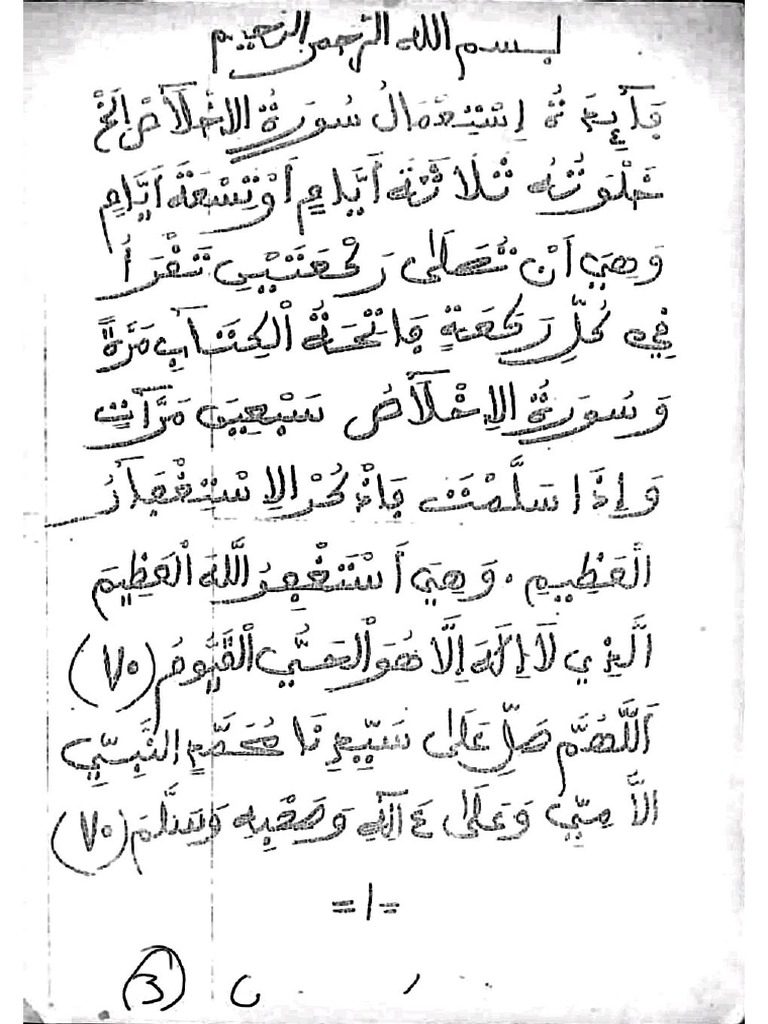 بسم الله الرحمن الرحيم
فَآئِدَةُ إِسْتِعْمَالُ سُورَةُ الِاخْلَآصْ اَلخْ
خَلْوَتُهُ ثَلَاثَةَ اَيَّامٍ اَوْتِسْعَةَ اَيَّامٍ
وَهِيَ اَنْ تُصَلَى رَكْعَتَيْنِ تَقْرَأُ
فِي كُلِّ رَكْعَةٍ فَاتِحَةُ الْكِتَابِ مَرَّةً
وَسُورَةُ الِاخْلَآصُ سَبْعِينَ مَرَّاتٍ
وَإِذَا سَلَّمْتَ فَاذْكُرْ الِاسْتِغْفَارُ
الْعَظِيمِ. وَهِيَ أَسْتَغْفِرُ اللَّهَ الْعَظِيمَ
الَّذِي لَا إِلَهَ إِلَّا هُوَ الْحَيُّ الْقَيُّومُ (٧٠)
اَللَّهُمَّ صَلِّ عَلَى سَيِّدِنَا مُحَمَّدٍ النَّبِيِّ
الأُمِيِّ وَعَلَى ءَالِهِ وَصَحْبِهِ وَسَلَّمَ (٧٠)
=١=
3